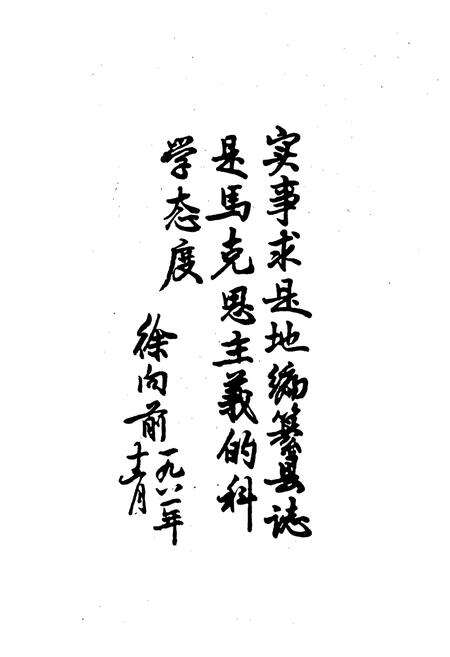 实事求是地编纂县誌
是馬克思主義的科
学态度
徐向前
一九八一年
十二月